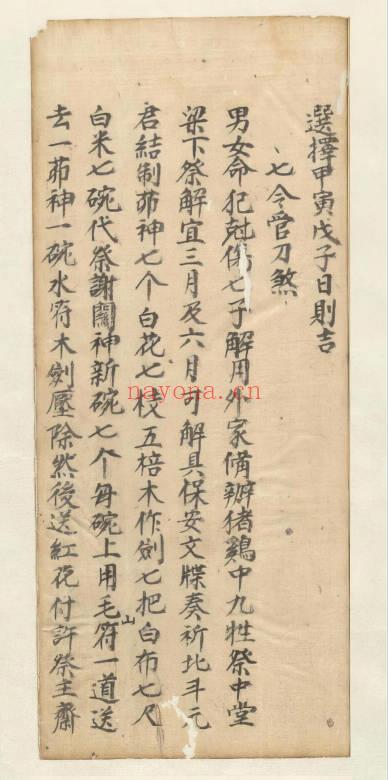 選擇甲寅戊子日則吉
七令官刀煞
男女命犯尅傷七子解用本家備辦猪鷄中九牲祭中堂
梁下祭解宜三月及六月可解具保安文牒奏祈北斗元
君結制茆神七个白花七枝五棓木作劍七把白布七尺
白米七碗代祭謝關神新碗七个每碗上用毛符一道送
山
去一茆神一碗水符木劍壓除然後送紅花付許祭主齋
nayona.cn